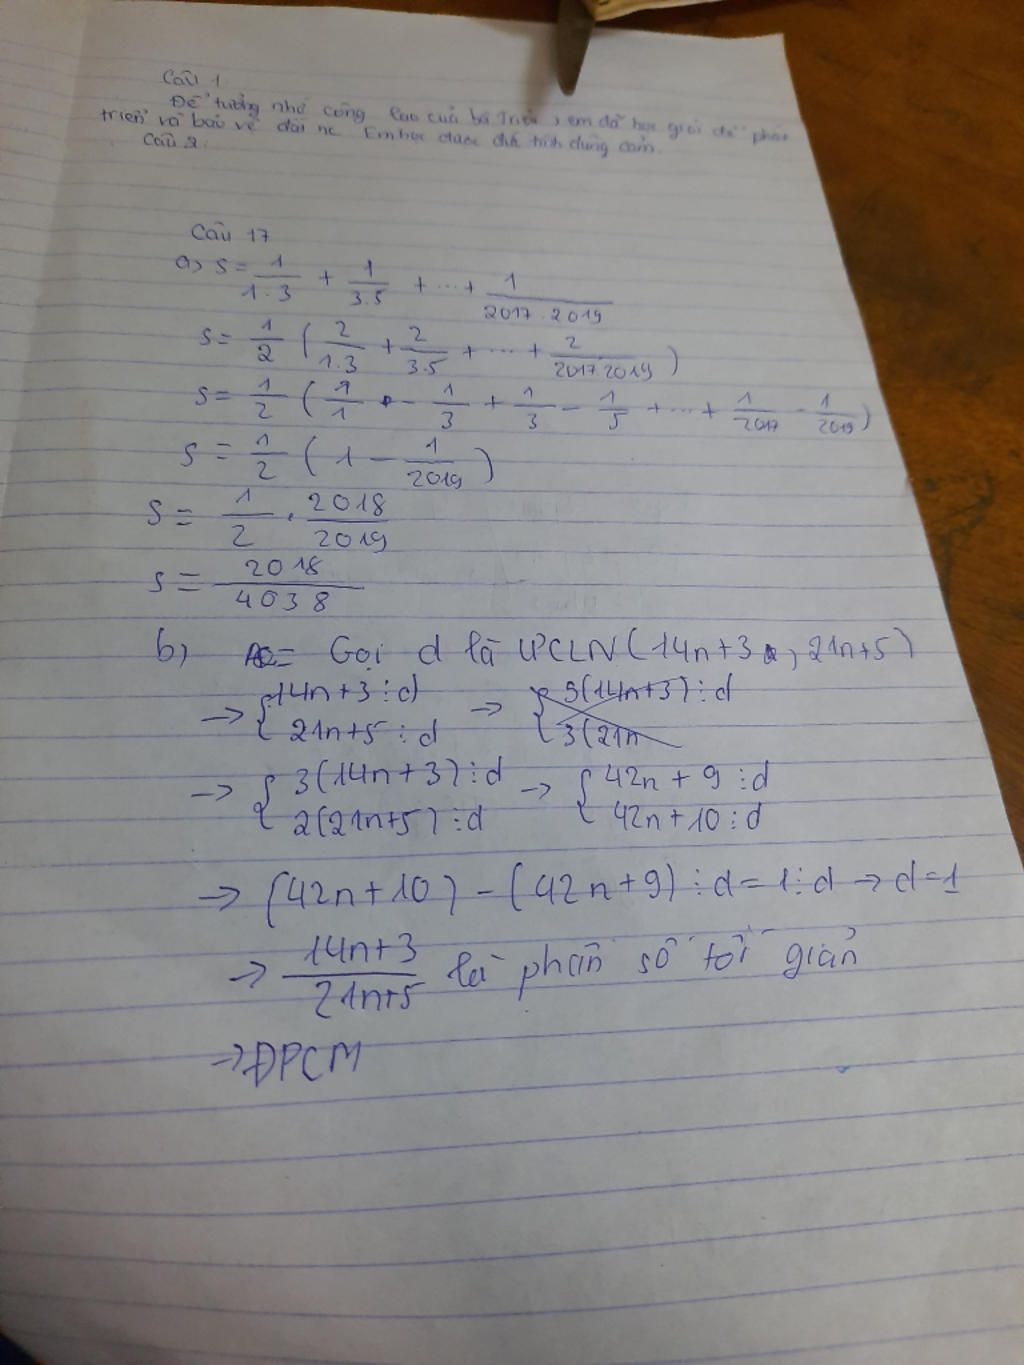 Câu 1
Để tưởng nhớ công lao của bà Triệu, em đã học giỏi để phát
triển và bảo vệ đất nc. Em học được đức tính dũng cảm.
Câu 2.
Câu 17
a) S = 1/1.3 + 1/3.5 + ... + 1/2017.2019
S = 1/2 ( 2/1.3 + 2/3.5 + ... + 2/2017.2019 )
S = 1/2 ( 1/1 - 1/3 + 1/3 - 1/5 + ... + 1/2017 - 1/2019 )
S = 1/2 ( 1 - 1/2019 )
S = 1/2 . 2018/2019
S = 2018/4038
b) Gọi d là ƯCLN(14n+3, 21n+5)
→ { 14n+3 ⋮ d → { 9(14n+3) ⋮ d
21n+5 ⋮ d 3(21n
→ { 3(14n+3) ⋮ d → { 42n + 9 ⋮ d
2(21n+5) ⋮ d 42n+10 ⋮ d
→ (42n+10) - (42n+9) ⋮ d = 1 ⋮ d → d=1
→ 14n+3/21n+5 là phân số tối giản
→ ĐPCM